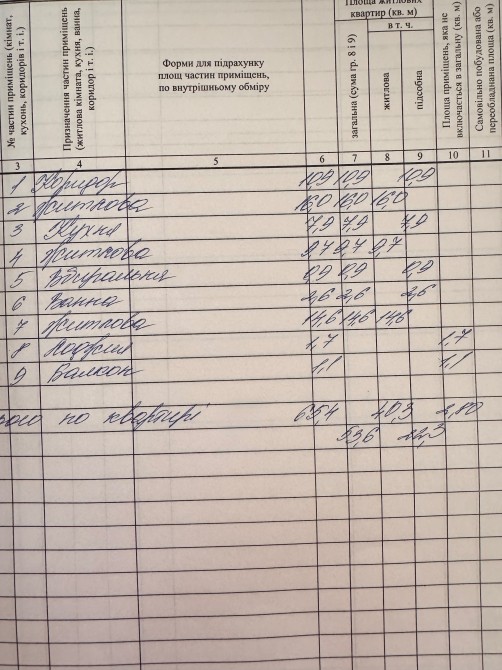 № частин приміщень (кімнат,
кухонь, коридорів і т. і.)
Призначення частин приміщень
(житлова кімната, кухня, ванна,
коридор і т. і.)
Форми для підрахунку
площ частин приміщень,
по внутрішньому обміру
Площа житлових
квартир (кв. м)
загальна (сума гр. 8 і 9)
в т. ч.
житлова
підсобна
Площа приміщень, яка не
включається в загальну (кв. м)
Самовільно побудована або
переобладнана площа (кв. м)
3 4 5 6 7 8 9 10 11
1 Коридор 10,9 10,9 10,9
2 Житлова 16,0 16,0 16,0
3 Кухня 7,9 7,9 7,9
4 Житлова 9,7 9,7 9,7
5 Вбиральня 0,9 0,9 0,9
6 Ванна 2,6 2,6 2,6
7 Житлова 14,6 14,6 14,6
8 Лоджія 1,7 1,7
9 Балкон 1,1 1,1
ього по квартирі 65,4 40,3 2,80
22,3